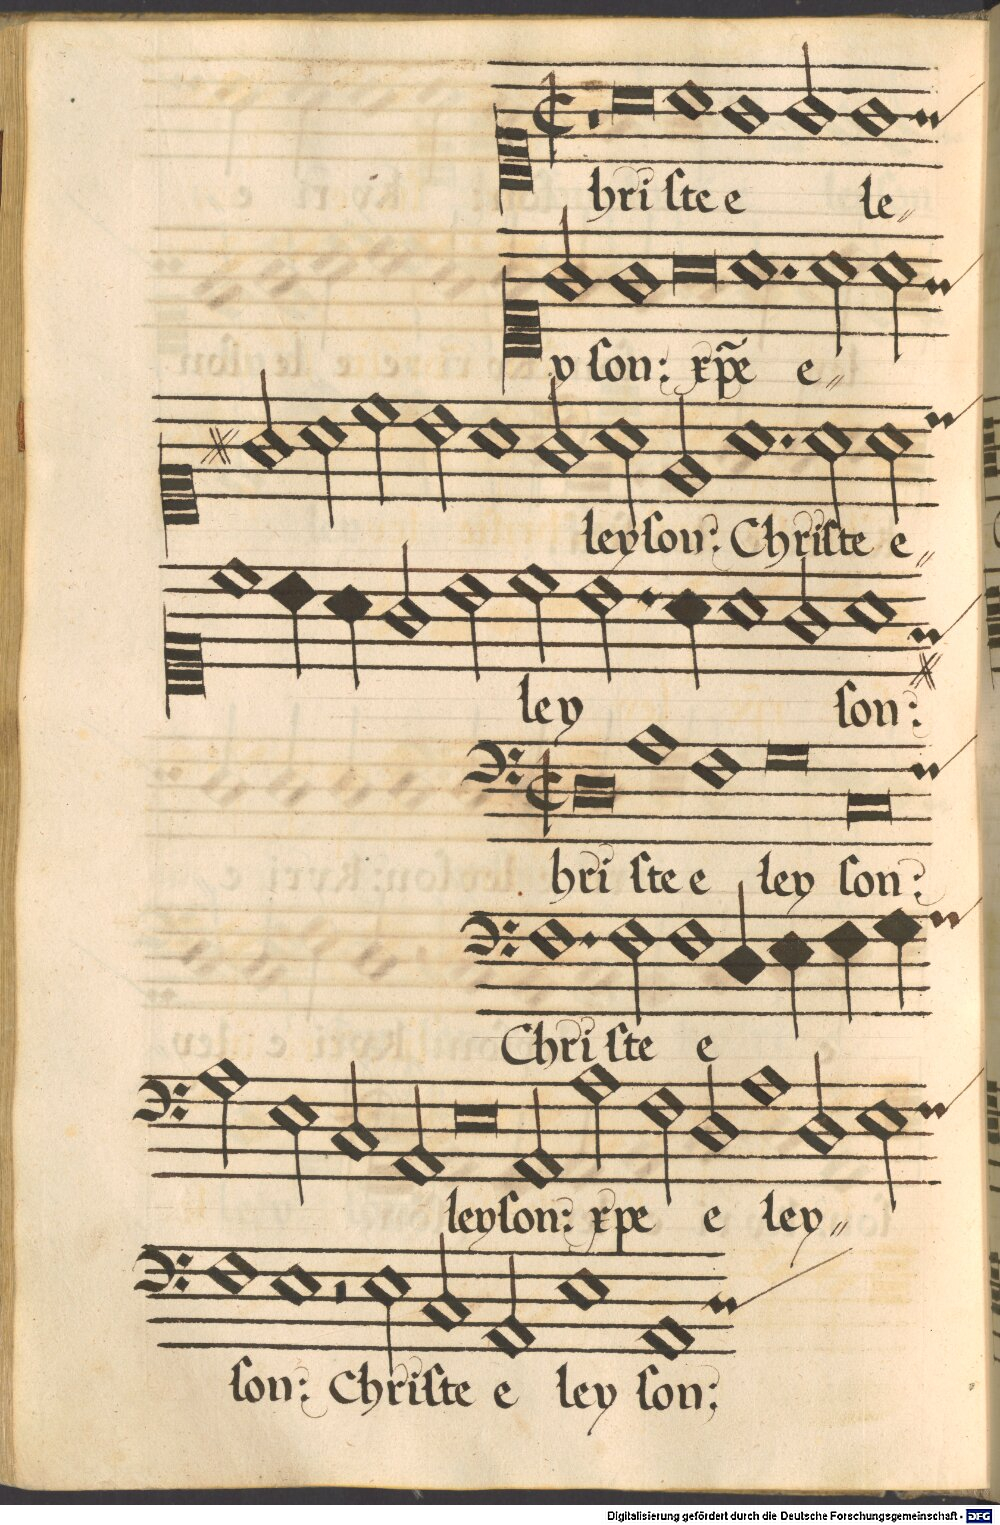 hri ste e le〃
y son: xp̄e e〃
leyson: Christe e〃
ley son:
hri ste e ley son:
Chri ste e
leyson: xpe e ley〃
son: Christe e ley son:
Digitalisierung gefördert durch die Deutsche Forschungsgemeinschaft - DFG